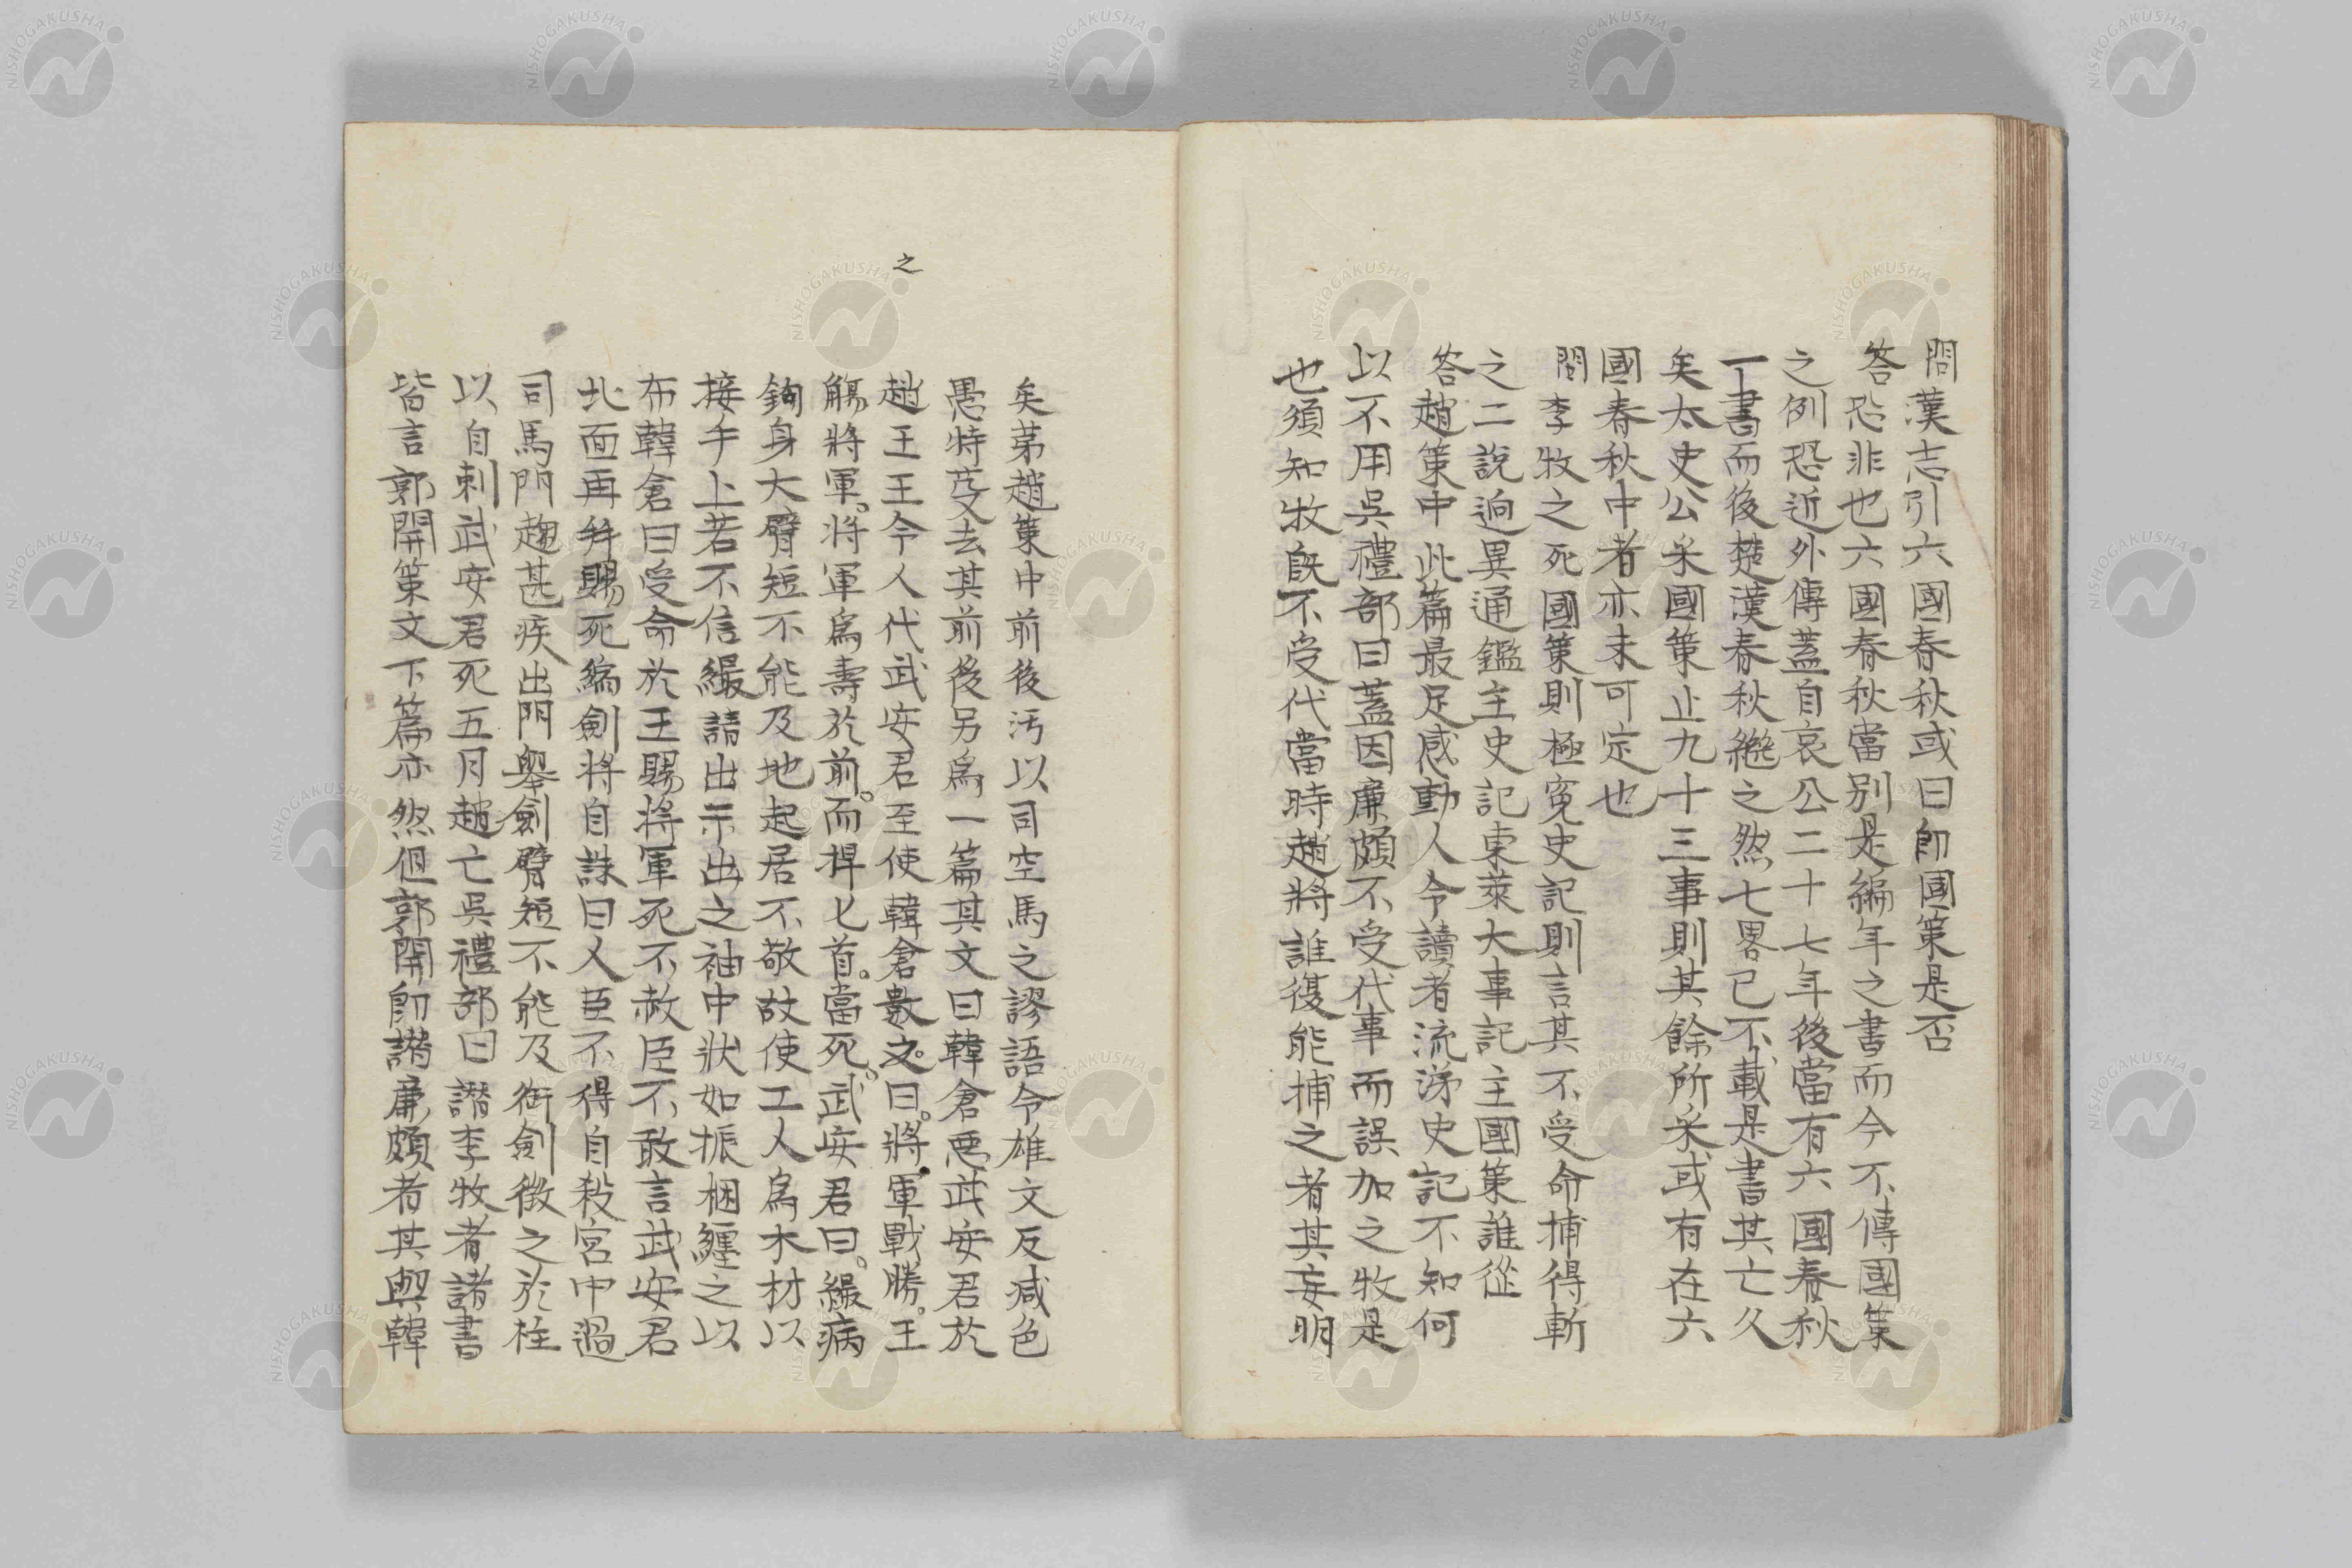 問漢志引六國春秋或曰卽國策是否
答恐非也六國春秋當別是編年之書而今不傳國策
之例恐近外傳蓋自哀公二十七年後當有六國春秋
一書而後楚漢春秋繼之然七畧已不載是書其亡久
矣太史公采國策止九十三事則其餘所采或有在六
國春秋中者亦未可定也
問李牧之死國策則極寃史記則言其不受命捕得斬
之二說逈異通鑑主史記東萊大事記主國策誰從
答趙策中此篇最足感動人令讀者流涕史記不知何
以不用吳禮部曰蓋因廉頗不受代事而誤加之牧是
也須知牧旣不受代當時趙將誰復能捕之者其妄明
矣苐趙策中前後汚以司空馬之謬語令雄文反减色
愚特芟去其前後另爲一篇其文曰韓倉惡武安君於
趙王王令人代武安君至使韓倉數之曰將軍戰勝王
觴將軍將軍爲壽於前而捍匕首當死武安君曰繓病
鉤身大臂短不能及地起居不敬故使工人爲木材以
接手上若不信繓請出示出之袖中狀如振梱纏之以
布韓倉曰受命於王賜將軍死不赦臣不敢言武安君
北面再拜賜死縮劍將自誅曰人臣不得自殺宮中過
司馬門趨甚疾出門舉劍臂短不能及銜劍徵之於柱
以自刺武安君死五月趙亡吳禮部曰譖李牧者諸書
皆言郭開策文下篇亦然但郭開卽譖廉頗者其與韓
之
NISHOGAKUSHA